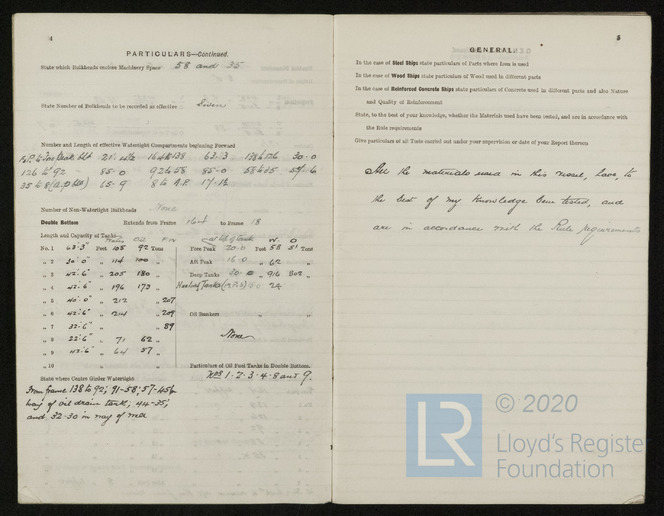 4
PARTICULARS—Continued.
State which Bulkheads enclose Machinery Space 58 and 35
State Number of Bulkheads to be recorded as effective Seven
Number and Length of effective Watertight Compartments beginning Forward
164 to 138 63.3 138 to 126 30.0
126 to 92 85.0 92 to 58 85.0 58 to 35 57.6
8 to A.P.
Number of Non-Watertight Bulkheads None
Double Bottom Extends from Frame 164 to Frame 18
Length and Capacity of Tanks— Water Oil F.W.
No. 1 63'.3" Feet 105 92 Tons
„ 2 30'.0" „ 114 100 „
„ 3 42'.6" „ 205 180 „
„ 4 42'.6" „ 196 173 „
„ 5 40'.0" „ 212 „ 207
„ 6 42'.6" „ 214 „ 209
„ 7 32'.6" „ „ 89
„ 8 22'.6" „ 71 62 „
„ 9 42'.6" „ 64 57 „
„ 10 „ „
W O
Fore Peak 20.0 Feet 58 51 Tons
Aft Peak 16.0 „ 62 „
Deep Tanks 30.0 „ 916 802 „
Oil Bunkers „ „
None
Particulars of Oil Fuel Tanks in Double Bottom.
Nos 1. 2. 3. 4. 8 and 9.
State where Centre Girder Watertight
From frame 138 to 92; 91-58; 57-45 in
way of oil drain tank; 44-35;
and 32-30 in way of well
5
GENERAL.
In the case of Steel Ships state particulars of Parts where Iron is used
In the case of Wood Ships state particulars of Wood used in different parts
In the case of Reinforced Concrete Ships state particulars of Concrete used in different parts and also Nature
and Quality of Reinforcement
State, to the best of your knowledge, whether the Materials used have been tested, and are in accordance with
the Rule requirements
Give particulars of all Tests carried out under your supervision or date of your Report thereon
All the materials used in this vessel, have, to
the best of my knowledge been tested, and
are in accordance with the Rule requirements
© 2020
LR
Lloyd's Register
Foundation